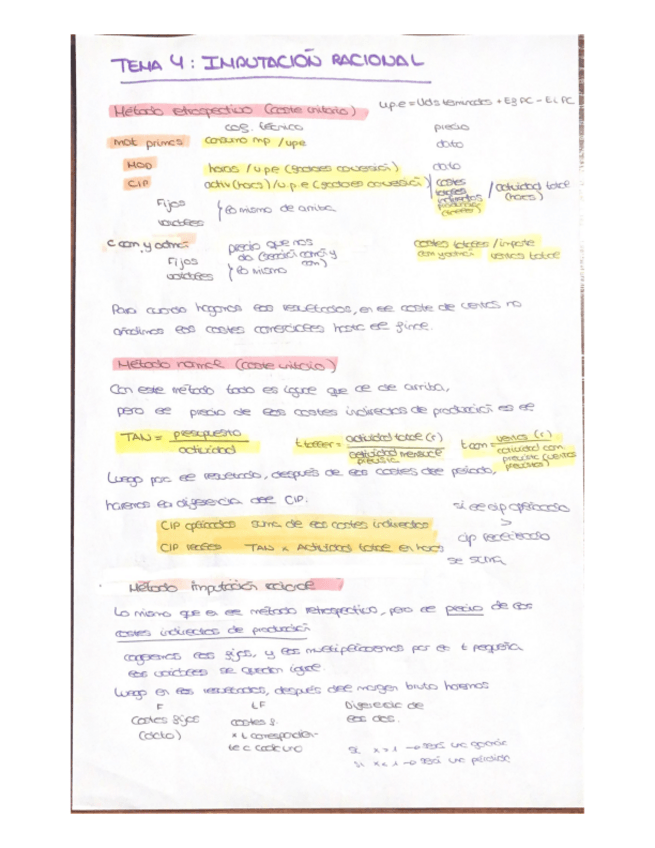 TEMA 4: IMPUTACIÓN RACIONAL
Método retrospectivo (coste unitario) u.p.e = Uds terminadas + Ef PC - Ei PC
coef. técnico precio
Mat primas consumo mp / upe dato
MOD horas / u.p.e (grados conversión) dato
CIP activ (horas) / u.p.e (grados conversión) costes totales indirectos / actividad total (horas)
Fijos
variables } lo mismo de arriba
C com y admó precio que nos da costes totales / importe
com y admó ventas total
Fijos
variables } lo mismo
Para cuando hagamos los resultados, en el coste de ventas no
añadimos los costes comerciales hasta el final.
Método normal (coste unitario)
Con este método todo es igual que el de arriba,
pero el precio de los costes indirectos de producción es el
TAN = presupuesto / actividad t taller = actividad total (r) / actividad mensual prevista t com = ventas (r) / actividad com. prevista (ventas previstas)
Luego para el resultado, después de los costes del periodo,
haremos la diferencia del CIP: si el cip aplicado
CIP aplicados suma de los costes indirectos >
CIP reales TAN x Actividad total en horas cip
se suma
Método imputación racional
Lo mismo que en el método retrospectivo, pero el precio de los
costes indirectos de producción
cogeremos los fijos, y los multiplicaremos por la t pequeña
los variables se quedan igual.
Luego en los resultados, después del margen bruto haremos
F LF Diferencia de
Costes fijos costes f. los dos.
(dato) x t correspondien-
te a cada uno
si x > 1 → será una ganancia
si x < 1 → será una pérdida